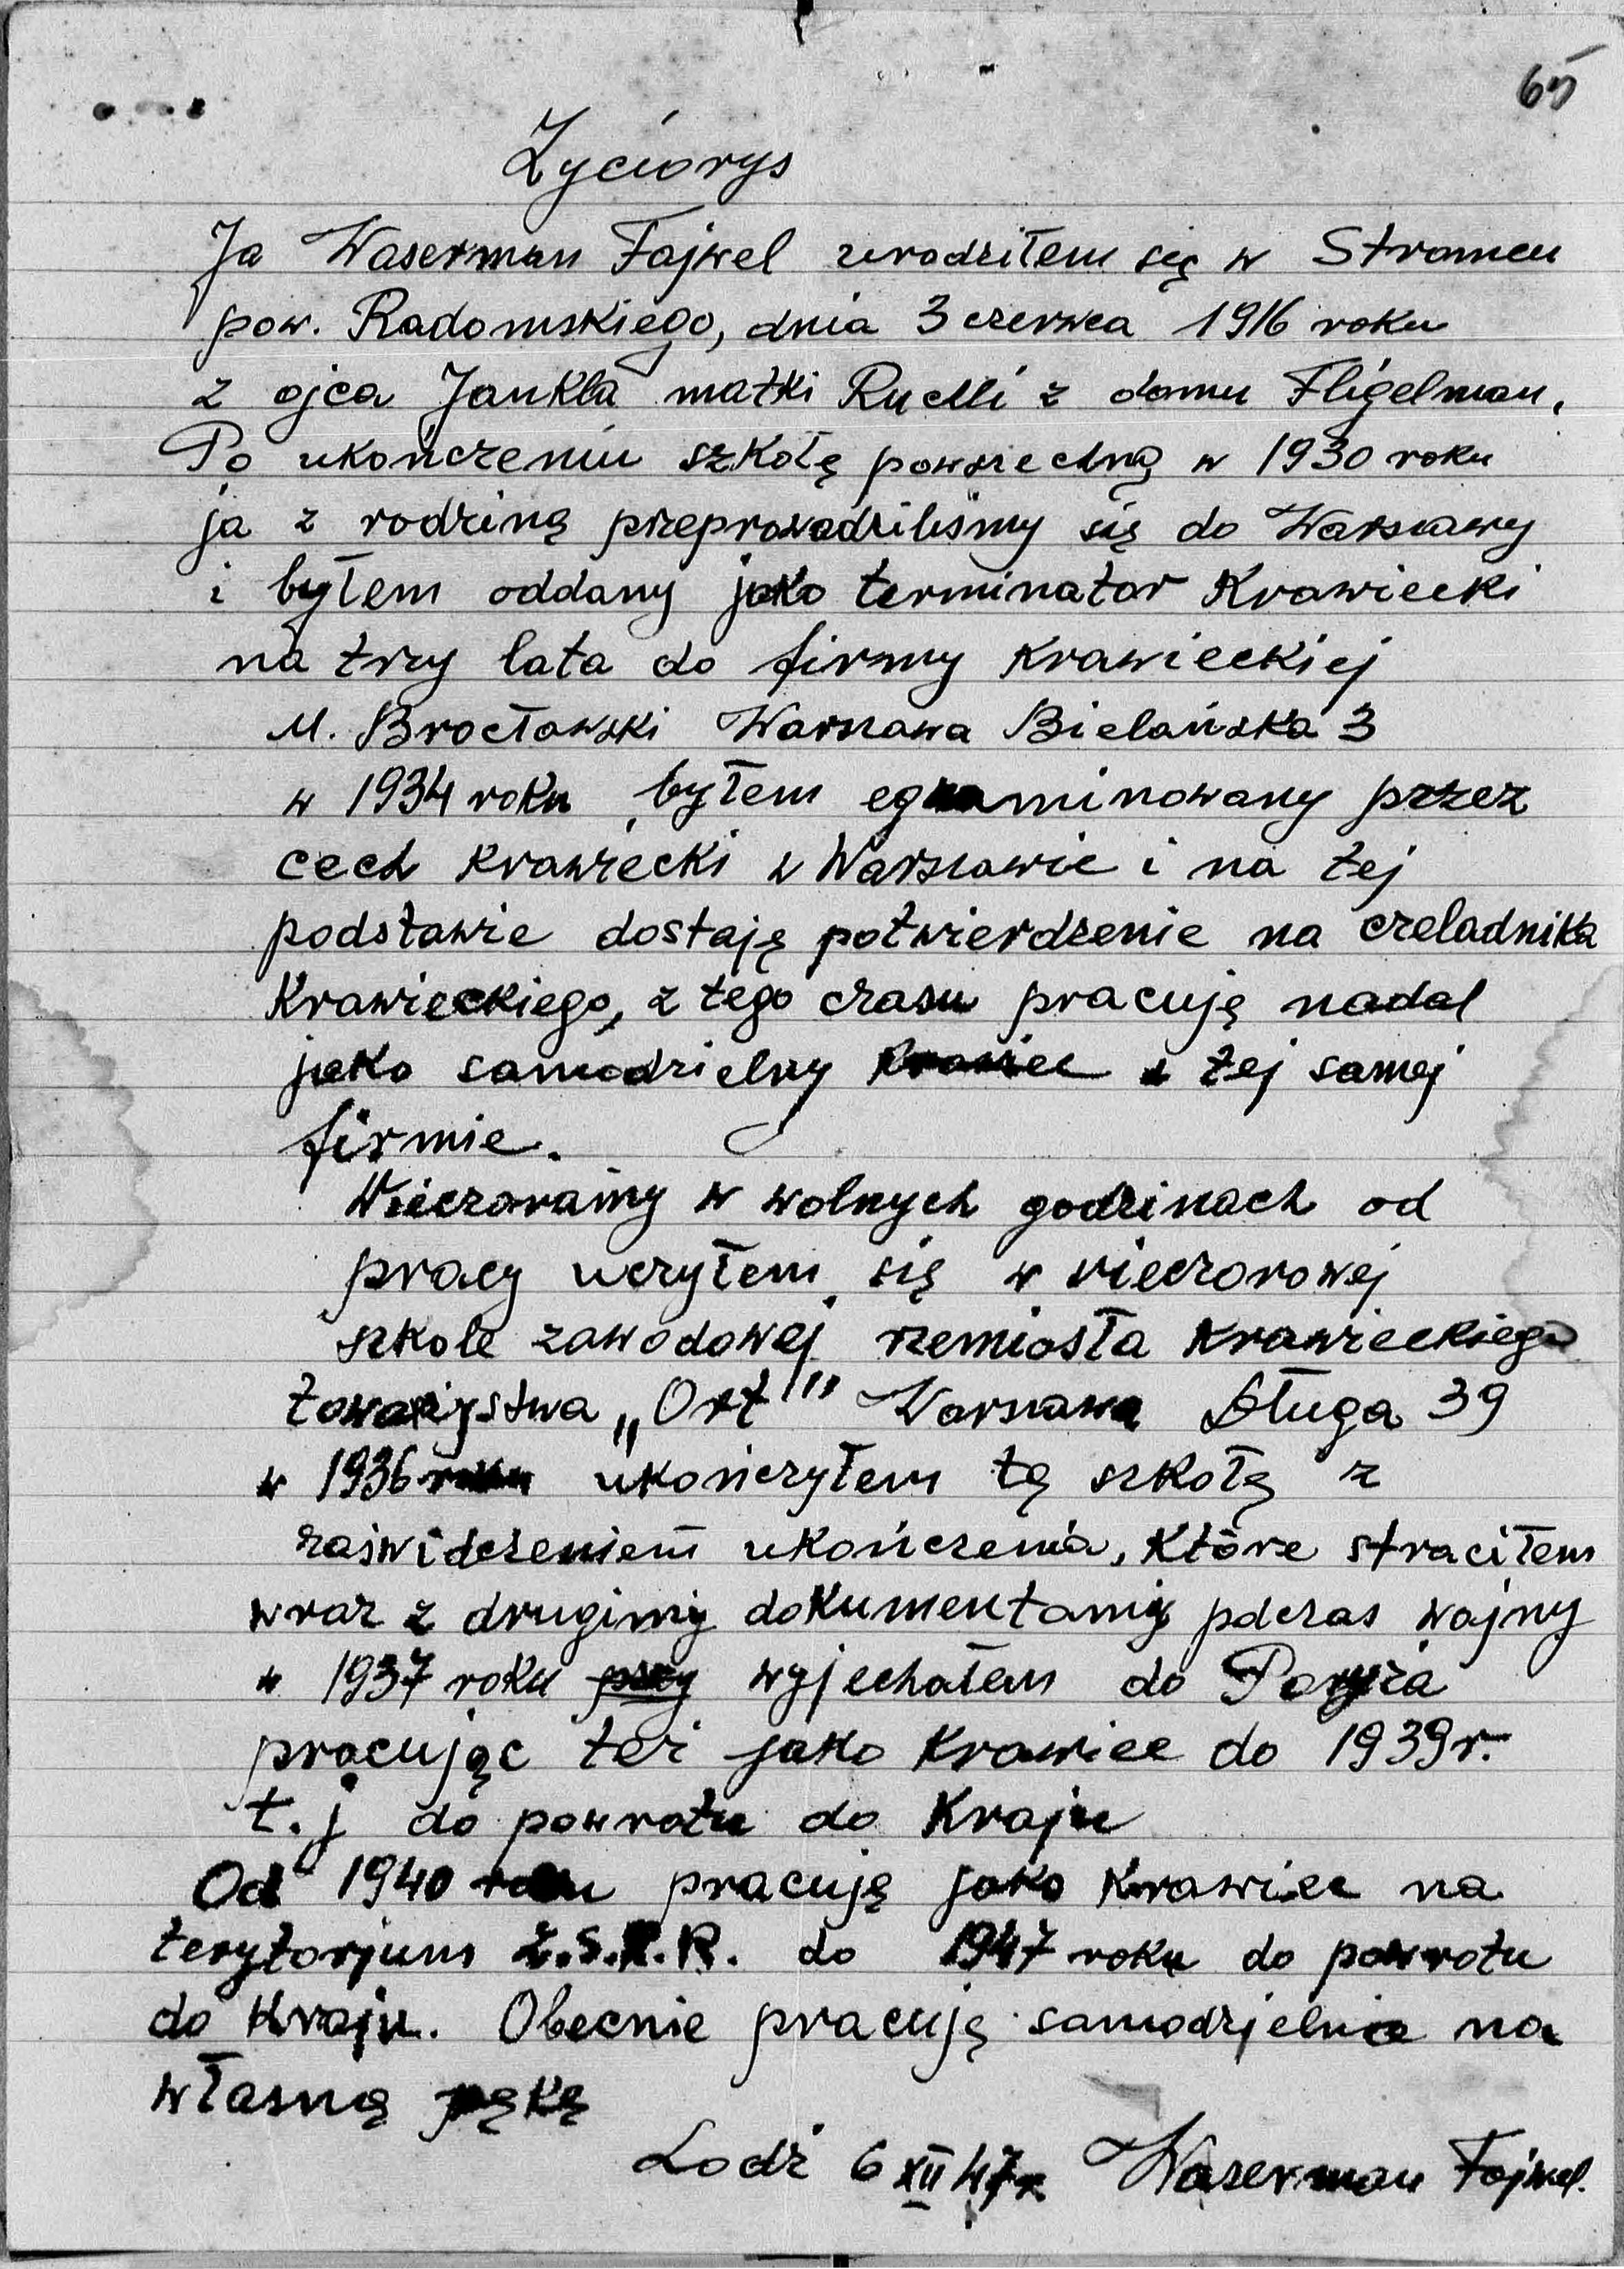 65
Życiorys
Ja Waserman Fajwel urodziłem się w Stromcu
pow. Radomskiego, dnia 3 czerwca 1916 roku
z ojca Jankla matki Ruchli z domu Fligelman.
Po ukończeniu szkołę powszechną w 1930 roku
ja z rodziną przeprowadziliśmy się do Warszawy
i byłem oddany jako terminator Krawiecki
na trzy lata do firmy Krawieckiej
M. Brocławski Warszawa Bielańska 3
w 1934 roku byłem egzaminowany przez
cech Krawiecki w Warszawie i na tej
podstawie dostaję potwierdzenie na czeladnika
Krawieckiego, z tego czasu pracuję nadal
jako samodzielny Krawiec w tej samej
firmie.
Wieczoramy w wolnych godzinach od
pracy uczyłem się w wieczorowej
szkole zawodowej rzemiosła Krawieckiego
towarzystwa „Ort" Warszawa Długa 39
w 1936 roku ukończyłem tę szkołę z
zaświdczeniem ukończenia, Które straciłem
wraz z drugimy dokumentamy pdczas wojny
w 1937 roku przy wyjechałem do Paryża
pracując też jako Krawiec do 1939 r.
t. j do powrotu do Kraju
Od 1940 roku pracuję jako Krawiec na
terytorjum Z.S.R.R. do 1947 roku do powrotu
do Kraju. Obecnie pracuję samodzjelnie na
własną rękę
Lodź 6 XII 47r Waserman Fajwel.